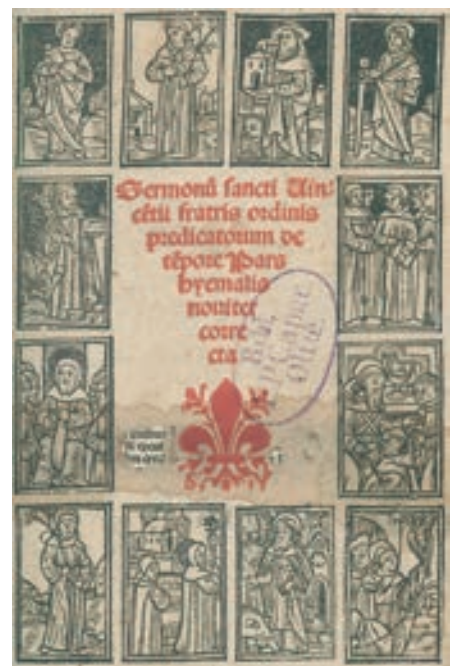 Sermonū sancti Uin⸗
cētii fratris ordinis
predicatorum de
tēpore Pars
hyemalis
nouiter
corre
cta